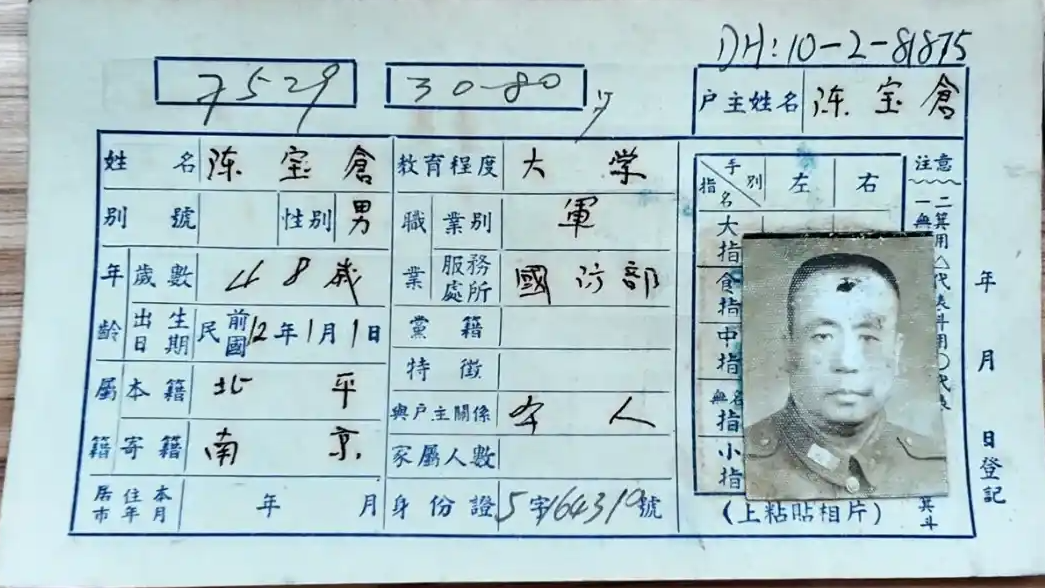 DH:10-2-81875
7529
30-80
户主姓名 陈宝倉
姓名 陈宝倉
教育程度 大学
別號
性別 男
職業 業別 軍
年齡 歲數 48歲
服務處所 國防部
出生日期 民國前12年1月1日
黨籍
特徵
屬籍 本籍 北平
與戶主關係 本人
寄籍 南京
家屬人數
居住本市年月 年 月
身份證 5字164319號
手別 指名 左 右
大指
食指
中指
無名指
小指
(上粘貼相片)
注意
一無
二箕用△代表斗用〇代表
箕斗
年 月 日登記